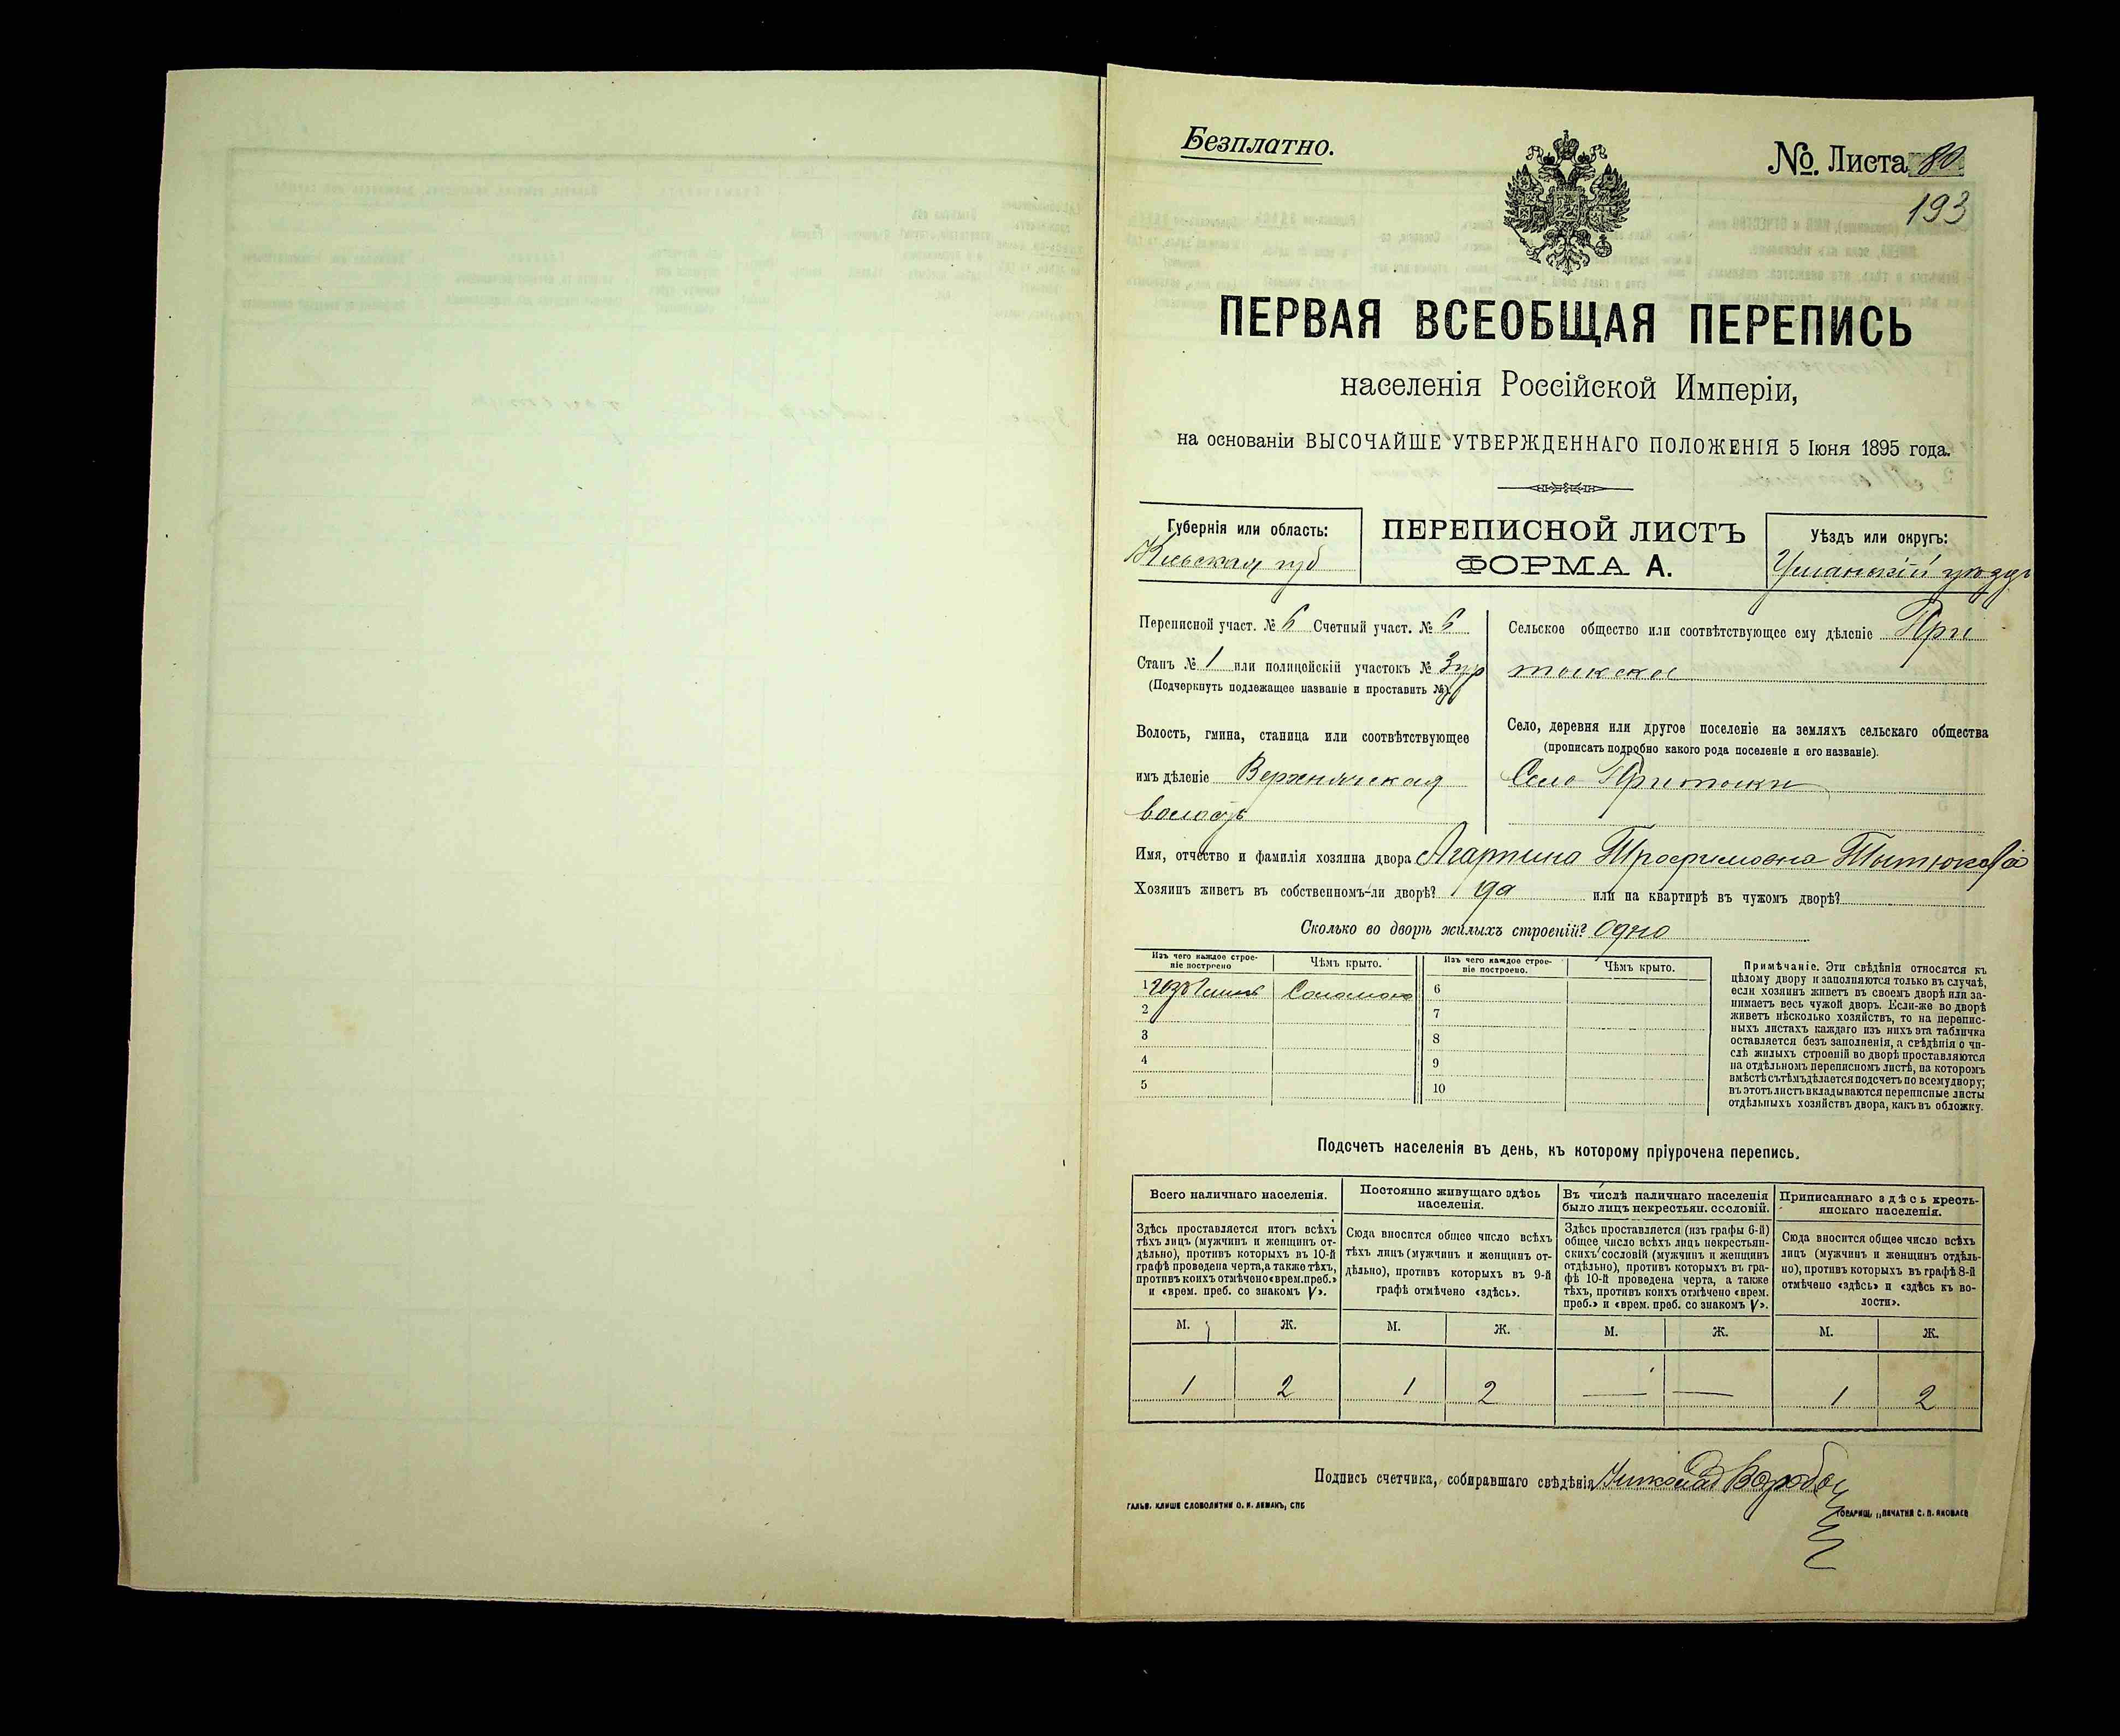 Безплатно.
№. Листа 80
193
ПЕРВАЯ ВСЕОБЩАЯ ПЕРЕПИСЬ
населенія Россійской Имперіи,
на основаніи ВЫСОЧАЙШЕ УТВЕРЖДЕННАГО ПОЛОЖЕНІЯ 5 Іюня 1895 года.
Губернія или область:
Кіевская губ
ПЕРЕПИСНОЙ ЛИСТЪ
ФОРМА А.
Уѣздъ или округъ:
Уманскій уѣздъ
Переписной участ. № 6 Счетный участ. № 6
Станъ № 1 или полицейскій участокъ № 3
(Подчеркнуть подлежащее названіе и проставить №).
Волость, гмина, станица или соотвѣтствующее
имъ дѣленіе Верхнячская
волость
Сельское общество или соотвѣтствующее ему дѣленіе При
тыкское
Село, деревня или другое поселеніе на земляхъ сельскаго общества
(прописать подробно какого рода поселеніе и его названіе).
Село Притыки
Имя, отчество и фамилія хозяина двора Агарпина Трофимовна
Хозяинъ живетъ въ собственномъ-ли дворѣ? да или на квартирѣ въ чужомъ дворѣ?
Сколько во дворѣ жилыхъ строеній? Одно
Изъ чего каждое строе-
ніе построено
Чѣмъ крыто.
Изъ чего каждое строе-
ніе построено.
Чѣмъ крыто.
1 изъ глины Соломою
2
3
4
5
6
7
8
9
10
Примѣчаніе. Эти свѣдѣнія относятся къ
цѣлому двору и заполняются только въ случаѣ,
если хозяинъ живетъ въ своемъ дворѣ или за-
нимаетъ весь чужой дворъ. Если-же во дворѣ
живетъ нѣсколько хозяйствъ, то на перепис-
ныхъ листахъ каждаго изъ нихъ эта табличка
оставляется безъ заполненія, а свѣдѣнія о чи-
слѣ жилыхъ строеній во дворѣ проставляются
на отдѣльномъ переписномъ листѣ, на которомъ
вмѣстѣ съ тѣмъ дѣлается подсчетъ по всему двору;
въ этотъ листъ вкладываются переписные листы
отдѣльныхъ хозяйствъ двора, какъ въ обложку.
Подсчетъ населенія въ день, къ которому пріурочена перепись.
Всего наличнаго населенія.
Здѣсь проставляется итогъ всѣхъ
тѣхъ лицъ (мужчинъ и женщинъ от-
дѣльно), противъ которыхъ въ 10-й
графѣ проведена черта, а также тѣхъ,
противъ коихъ отмѣчено «врем. преб.»
и «врем. преб. со знакомъ V».
Постоянно живущаго здѣсь
населенія.
Сюда вносится общее число всѣхъ
тѣхъ лицъ (мужчинъ и женщинъ от-
дѣльно), противъ которыхъ въ 9-й
графѣ отмѣчено «здѣсь».
Въ числѣ наличнаго населенія
было лицъ некрестьян. сословій.
Здѣсь проставляется (изъ графы 6-й)
общее число всѣхъ лицъ некрестьян-
скихъ сословій (мужчинъ и женщинъ
отдѣльно), противъ которыхъ въ гра-
фѣ 10-й проведена черта, а также
тѣхъ, противъ коихъ отмѣчено «врем.
преб.» и «врем. преб. со знакомъ V».
Приписаннаго здѣсь кресть-
янскаго населенія.
Сюда вносится общее число всѣхъ
лицъ (мужчинъ и женщинъ отдѣль-
но), противъ которыхъ въ графѣ 8-й
отмѣчено «здѣсь» и «здѣсь къ во-
лости».
М. Ж. М. Ж. М. Ж. М. Ж.
1 2 1 2 — — 1 2
Подпись счетчика, собиравшаго свѣдѣнія
ГАЛЬВ. КЛИШЕ СЛОВОЛИТНИ О. И. ЛЕМАНЪ, СПБ
ТОВАРИЩ. „ПЕЧАТНЯ С. П. ЯКОВЛЕВ